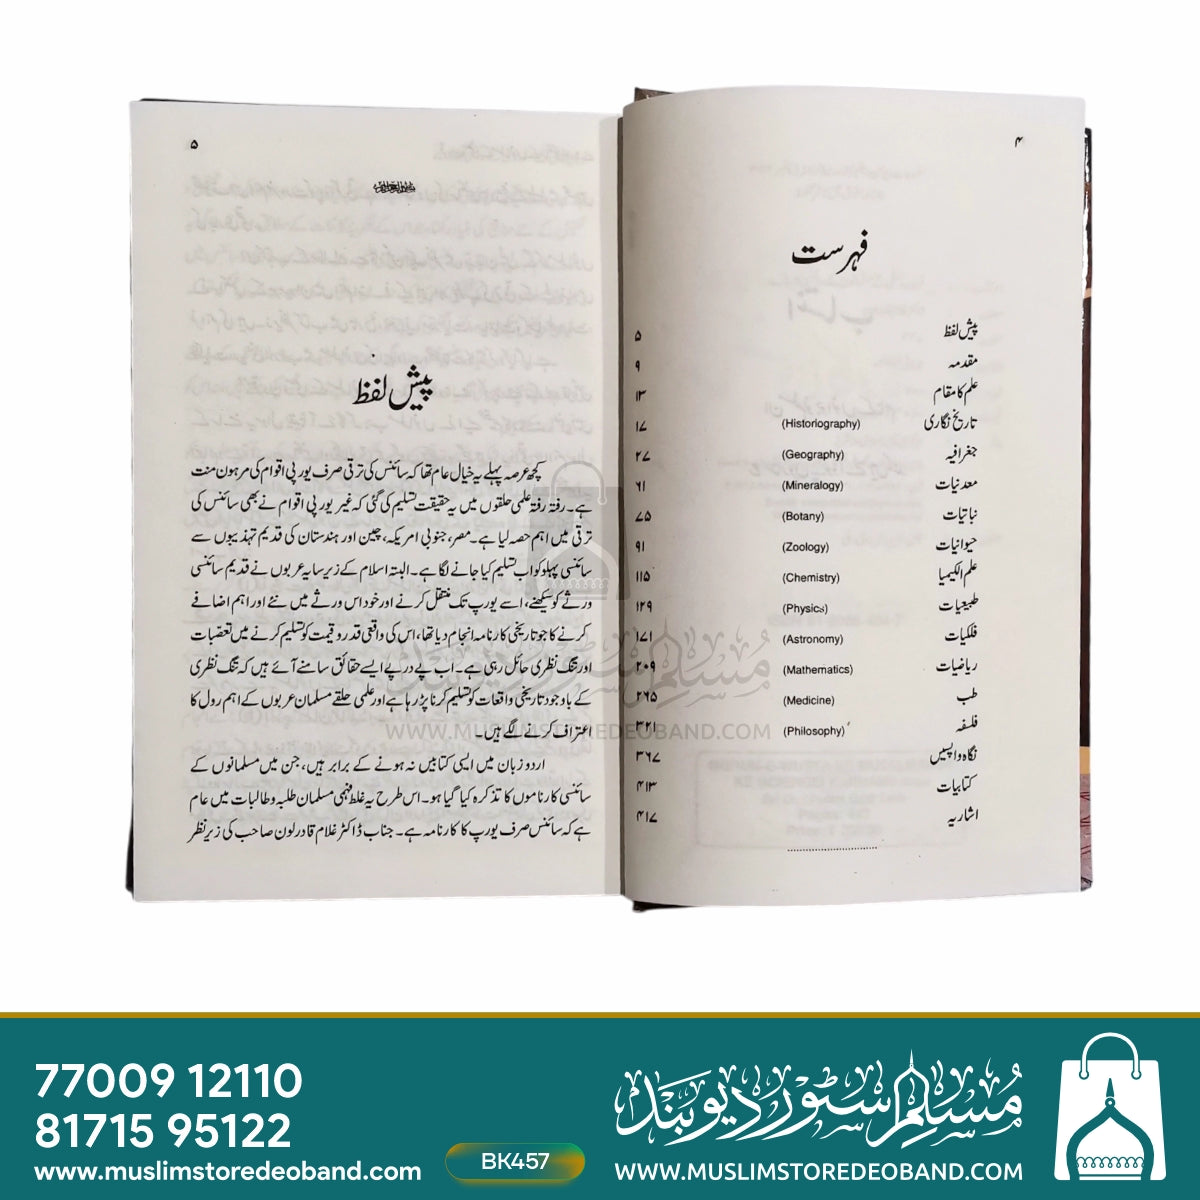 ۴
فہرست
پیش لفظ ۵
مقدمہ ۹
علم کا مقام ۱۳
تاریخ نگاری (Historiography) ۱۷
جغرافیہ (Geography) ۲۷
معدنیات (Mineralogy) ۶۱
نباتیات (Botany) ۷۵
حیوانیات (Zoology) ۹۱
علم الکیمیا (Chemistry) ۱۱۵
طبیعیات (Physics) ۱۲۹
فلکیات (Astronomy) ۱۷۱
ریاضیات (Mathematics) ۲۰۹
طب (Medicine) ۲۶۵
فلسفہ (Philosophy) ۳۲۱
نگاہ واپسیں ۳۶۷
کتابیات ۴۱۳
اشاریہ ۴۱۷
۵
پیش لفظ
کچھ عرصہ پہلے یہ خیال عام تھا کہ سائنس کی ترقی صرف یورپی اقوام کی مرہون منت
ہے۔ رفتہ رفتہ علمی حلقوں میں یہ حقیقت تسلیم کی گئی کہ غیر یورپی اقوام نے بھی سائنس کی
ترقی میں اہم حصہ لیا ہے۔ مصر، جنوبی امریکہ، چین اور ہندستان کی قدیم تہذیبوں سے
سائنسی پہلو کو اب تسلیم کیا جانے لگا ہے۔ البتہ اسلام کے زیر سایہ عربوں نے قدیم سائنسی
ورثے کو سیکھنے، اسے یورپ تک منتقل کرنے اور خود اس ورثے میں نئے اور اہم اضافے
کرنے کا جو تاریخی کارنامہ انجام دیا تھا، اس کی واقعی قدر و قیمت کو تسلیم کرنے میں تعصبات
اور تنگ نظری حائل رہی ہے۔ اب پے در پے ایسے حقائق سامنے آئے ہیں کہ تنگ نظری
کے باوجود تاریخی واقعات کو تسلیم کرنا پڑ رہا ہے اور علمی حلقے مسلمان عربوں کے اہم رول کا
اعتراف کرنے لگے ہیں۔
اردو زبان میں ایسی کتابیں نہ ہونے کے برابر ہیں، جن میں مسلمانوں کے
سائنسی کارناموں کا تذکرہ کیا گیا ہو۔ اس طرح یہ غلط فہمی مسلمان طلبہ و طالبات میں عام
ہے کہ سائنس صرف یورپ کا کارنامہ ہے۔ جناب ڈاکٹر غلام قادر لون صاحب کی زیر نظر
مسلم سٹور دیوبند
WWW.MUSLIMSTOREDEOBAND.COM
77009 12110
81715 95122
www.muslimstoredeoband.com
BK457
مسلم سٹور دیوبند
WWW.MUSLIMSTOREDEOBAND.COM